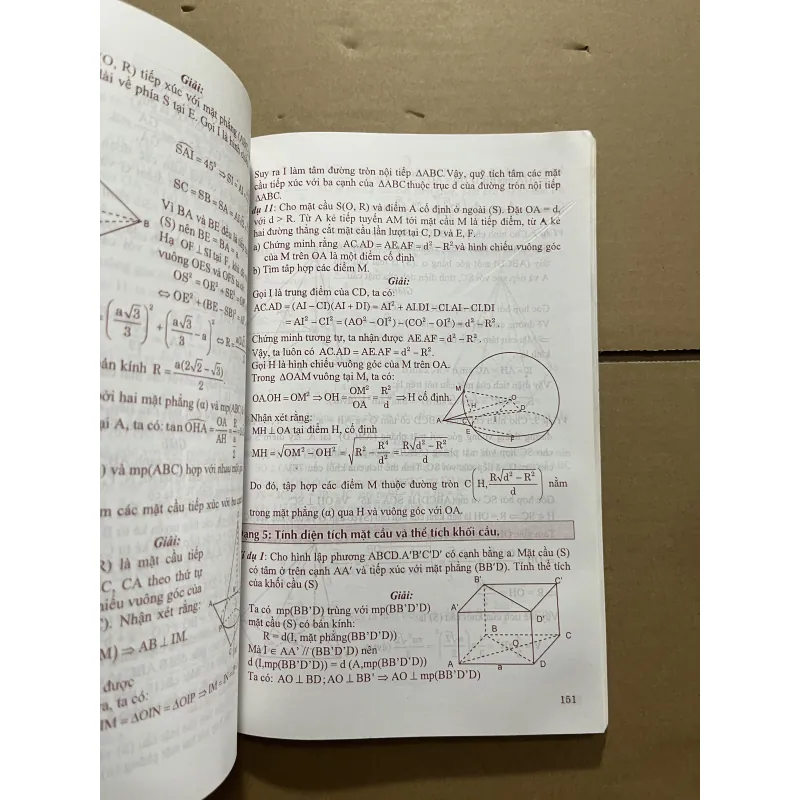 O, R) tiếp xúc với mặt phẳng
Giải:
dài về phía S tại E. Gọi I là hình
SAI = 45⁰ ⇒ SI = AI
SC = SB = SA =
Vì BA và BE đều là tiếp
(S) nên BE = BA =
Hạ OF ⊥ SI tại F,
vuông OES và OES
OS² = OE² + SE²
⇔ OE² + (BE − SB)²
(a√3/3)² + (a√3/3 − a)² ⇔ R =
bán kính R = a(2√2 − √3)/2.
bởi hai mặt phẳng (α) và mp(ABC)
tại A, ta có: tan OHA = OA/AH
) và mp(ABC) hợp với nhau một
m các mặt cầu tiếp xúc với ba cạnh
R) là mặt cầu tiếp
C, CA theo thứ tự
hiếu vuông góc của
). Nhận xét rằng:
M) ⇒ AB ⊥ IM.
được
a, ta có:
IM = ΔOIN = ΔOIP ⇒ IM = IN =
B
A
P
Suy ra I làm tâm đường tròn nội tiếp ΔABC. Vậy, quỹ tích tâm các mặt
cầu tiếp xúc với ba cạnh của ΔABC thuộc trục d của đường tròn nội tiếp
ΔABC.
dụ 11: Cho mặt cầu S(O, R) và điểm A cố định ở ngoài (S). Đặt OA = d,
với d > R. Từ A kẻ tiếp tuyến AM tới mặt cầu M là tiếp điểm, từ A kẻ
hai đường thẳng cắt mặt cầu lần lượt tại C, D và E, F.
a) Chứng minh rằng AC.AD = AE.AF = d² − R² và hình chiếu vuông góc
của M trên OA là một điểm cố định
b) Tìm tập hợp các điểm M.
Giải:
Gọi I là trung điểm của CD, ta có:
AC.AD = (AI − CI)(AI + DI) = AI² + AI.DI − CI.AI − CI.DI
= AI² − CI² = (AO² − OI²) − (CO² − OI²) = d² − R².
Chứng minh tương tự, ta nhận được AE.AF = d² − R².
Vậy, ta luôn có AC.AD = AE.AF = d² − R².
Gọi H là hình chiếu vuông góc của M trên OA.
Trong ΔOAM vuông tại M, ta có:
OA.OH = OM² ⇒ OH = OM²/OA = R²/d ⇒ H cố định.
Nhận xét rằng:
MH ⊥ OA tại điểm H, cố định
MH = √(OM² − OH²) = √(R² − R⁴/d²) = R√(d² − R²)/d
M
H
O
D
A
C
E
F
Do đó, tập hợp các điểm M thuộc đường tròn C(H, R√(d² − R²)/d) nằm
trong mặt phẳng (α) qua H và vuông góc với OA.
ạng 5: Tính diện tích mặt cầu và thể tích khối cầu.
í dụ 1: Cho hình lập phương ABCD.A'B'C'D' có cạnh bằng a. Mặt cầu (S)
có tâm ở trên cạnh AA' và tiếp xúc với mặt phẳng (BB'D). Tính thể tích
của khối cầu (S)
Giải:
Ta có mp(BB'D) trùng với mp(BB'D'D)
mặt cầu (S) có bán kính:
R = d(I, mặt phẳng(BB'D'D))
Mà I ∈ AA' // (BB'D'D) nên
d (I,mp(BB'D'D)) = d (A,mp(BB'D'D))
Ta có: AO ⊥ BD; AO ⊥ BB' ⇒ AO ⊥ mp(BB'D'D)
B'
C'
A'
D'
B
C
O
A
a
D
151